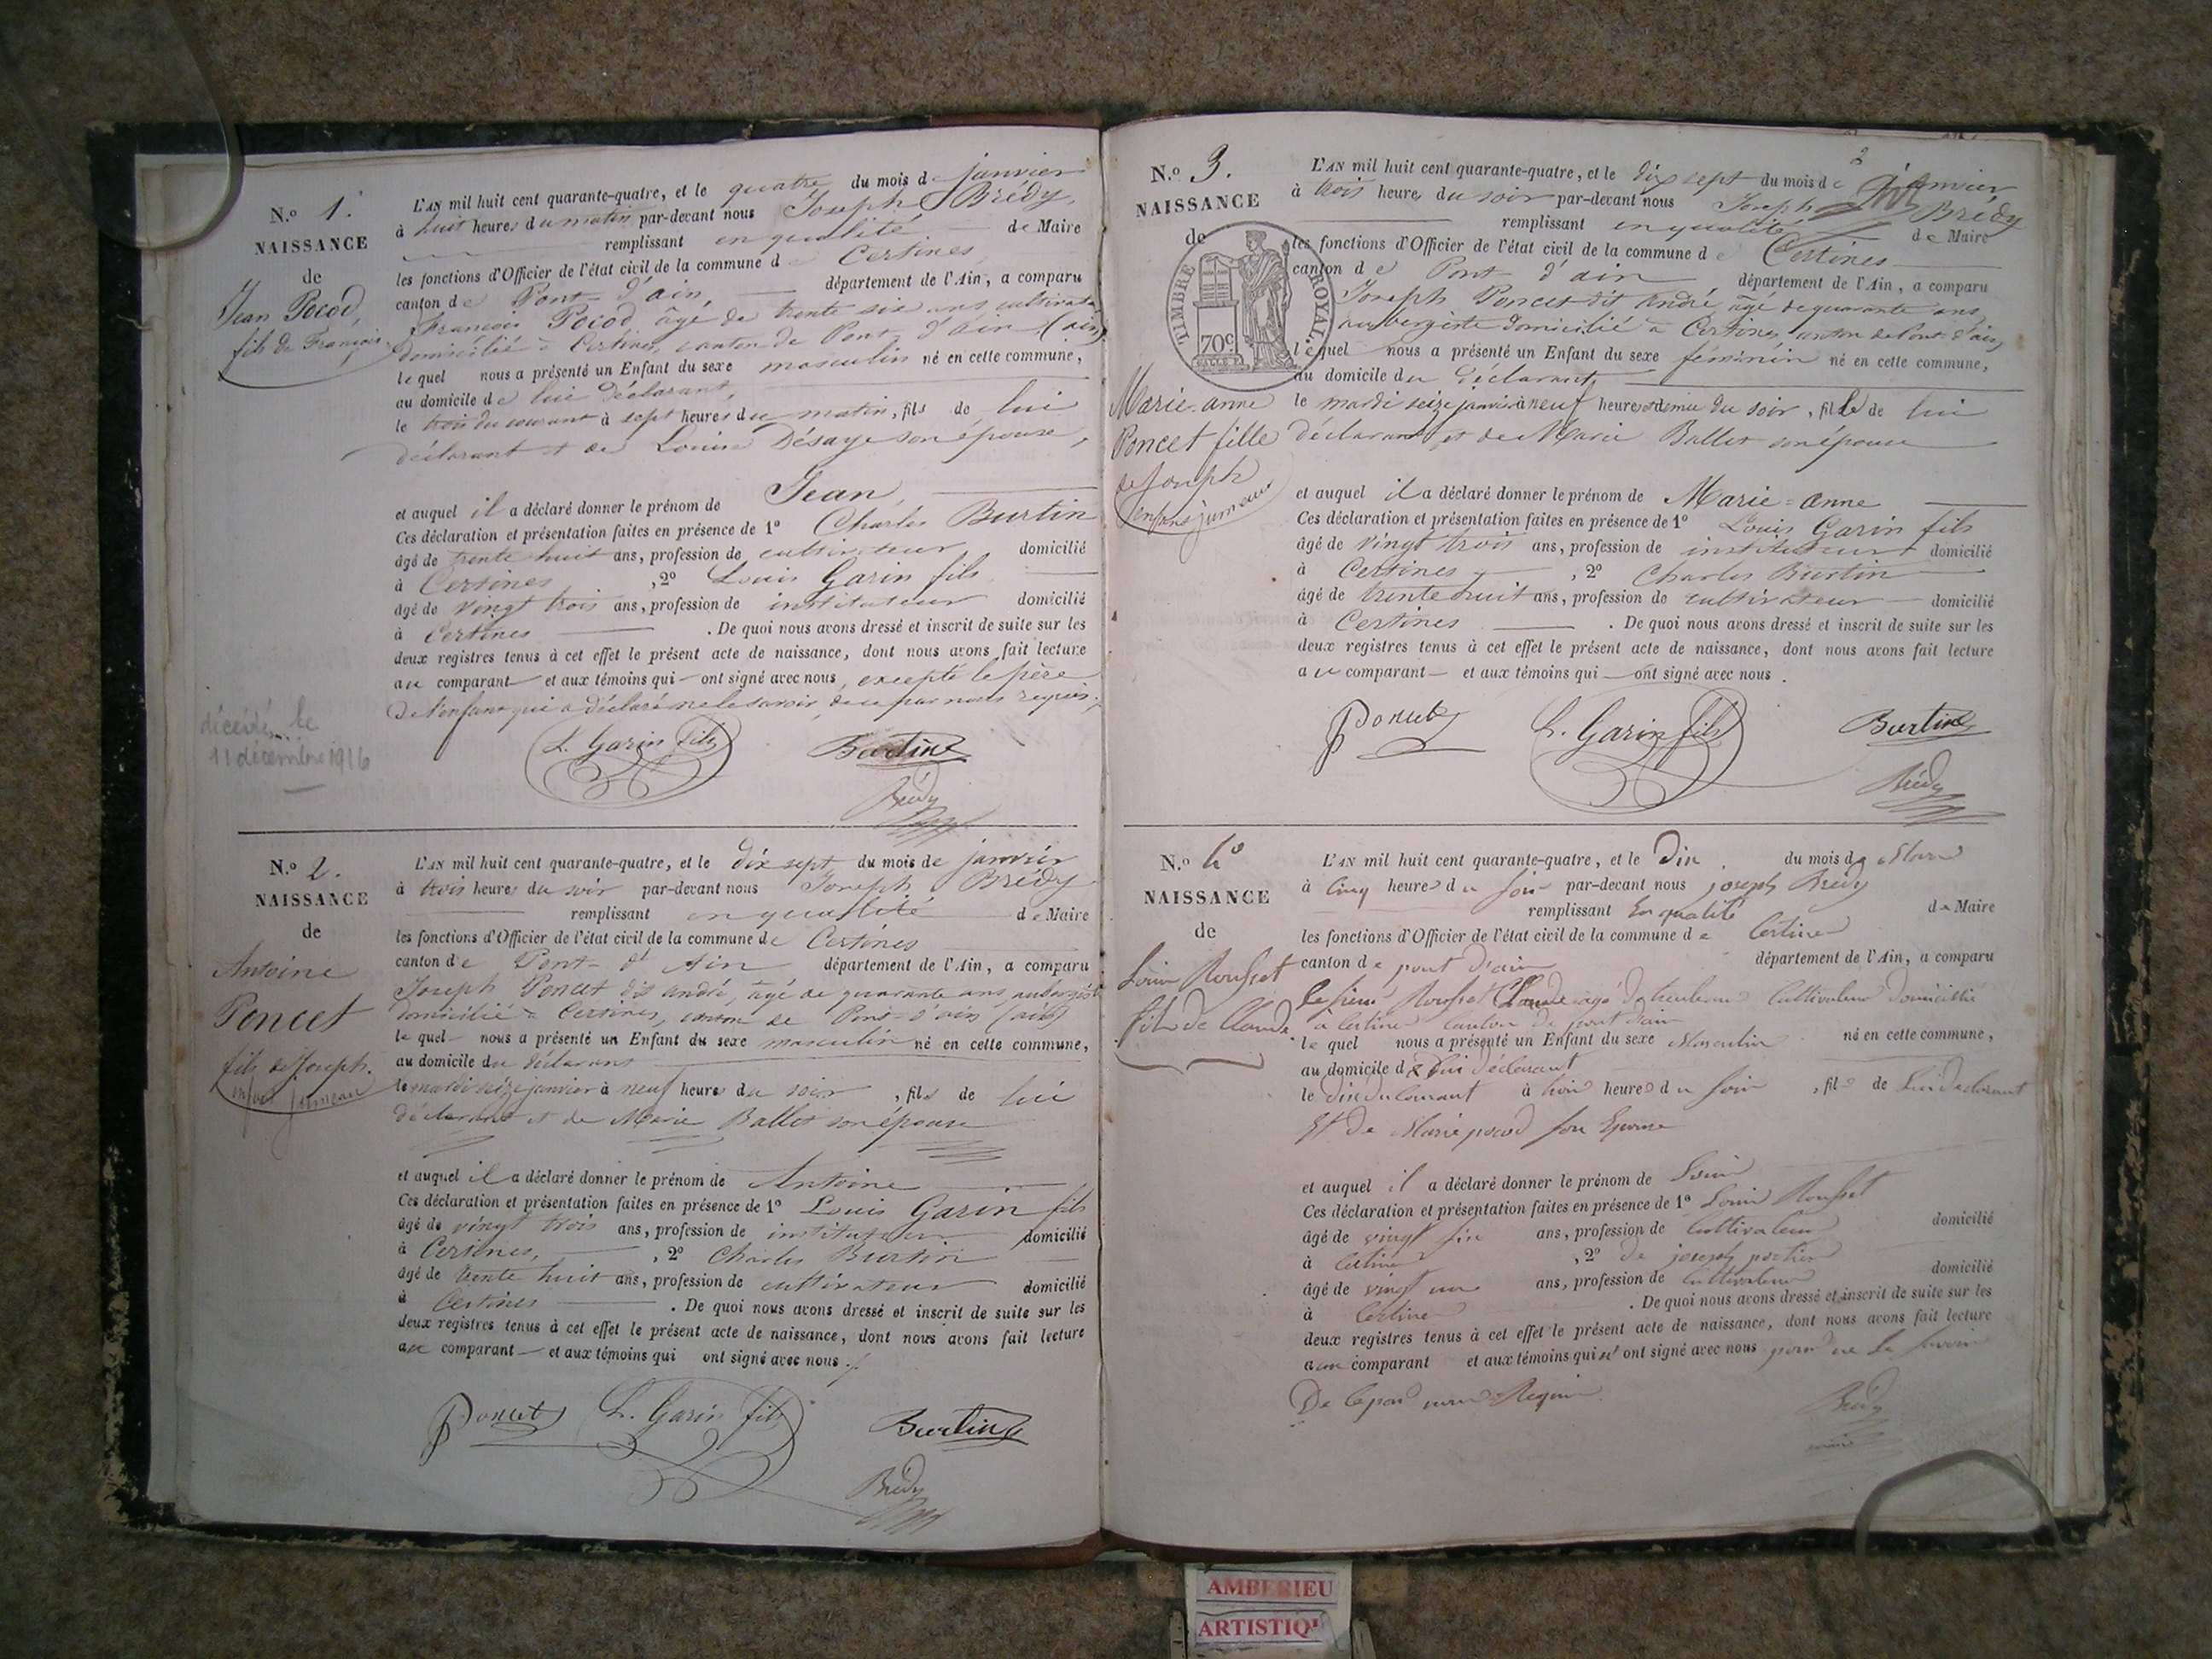 N.º 1.
NAISSANCE
de
Jean Pocod,
fils de François.
décédé le
11 décembre 1916
L'AN mil huit cent quarante-quatre, et le quatre du mois de janvier
à huit heures du matin par-devant nous Joseph Brédy,
remplissant en qualité de Maire
les fonctions d'Officier de l'état civil de la commune de Certines
canton de Pont-d'ain, département de l'Ain, a comparu
François Pocod âgé de trente six ans cultivateur
domicilié à Certines, canton de Pont-d'ain (ain)
lequel nous a présenté un Enfant du sexe masculin né en cette commune,
au domicile de lui déclarant,
le trois du courant à sept heures du matin, fils de lui
déclarant et de Louise Désaye son épouse,
et auquel il a déclaré donner le prénom de Jean,
Ces déclaration et présentation faites en présence de 1º Charles Burtin
âgé de trente huit ans, profession de cultivateur domicilié
à Certines, 2º Louis Garin fils
âgé de vingt trois ans, profession de instituteur domicilié
à Certines. De quoi nous avons dressé et inscrit de suite sur les
deux registres tenus à cet effet le présent acte de naissance, dont nous avons fait lecture
au comparant et aux témoins qui ont signé avec nous, excepté le père
de l'enfant qui a déclaré ne le savoir, de ce par nous requis.
L. Garin fils Burtin
Brédy
N.º 2.
NAISSANCE
de
Antoine
Poncet
fils de Joseph.
enfans jumeaux
L'AN mil huit cent quarante-quatre, et le dix sept du mois de janvier
à trois heures du soir par-devant nous Joseph Brédy
remplissant en qualité de Maire
les fonctions d'Officier de l'état civil de la commune de Certines
canton de Pont-d'Ain département de l'Ain, a comparu
Joseph Poncet dit andré, âgé de quarante ans aubergiste
domicilié à Certines, canton de Pont-d'ain (ain)
lequel nous a présenté un Enfant du sexe masculin né en cette commune,
au domicile du déclarant
le mardi seize janvier à neuf heures du soir, fils de lui
déclarant et de Marie Ballet son épouse
et auquel il a déclaré donner le prénom de Antoine
Ces déclaration et présentation faites en présence de 1º Louis Garin fils
âgé de vingt trois ans, profession de instituteur domicilié
à Certines, 2º Charles Burtin
âgé de trente huit ans, profession de cultivateur domicilié
à Certines. De quoi nous avons dressé et inscrit de suite sur les
deux registres tenus à cet effet le présent acte de naissance, dont nous avons fait lecture
au comparant et aux témoins qui ont signé avec nous.
Poncet L. Garin fils Burtin
Brédy
2
N.º 3.
NAISSANCE
de
TIMBRE ROYAL.
70c.
Marie-anne
Poncet fille
de Joseph
enfans jumeaux
L'AN mil huit cent quarante-quatre, et le dix sept du mois de janvier
à trois heures du soir par-devant nous Joseph Brédy
remplissant en qualité de Maire
les fonctions d'Officier de l'état civil de la commune de Certines
canton de Pont d'ain département de l'Ain, a comparu
Joseph Poncet dit André âgé de quarante ans,
aubergiste domicilié à Certines, canton de Pont-d'ain,
lequel nous a présenté un Enfant du sexe féminin né en cette commune,
au domicile du déclarant,
le mardi seize janvier à neuf heures et demie du soir, fille de lui
déclarant et de Marie Ballet son épouse
et auquel il a déclaré donner le prénom de Marie=anne
Ces déclaration et présentation faites en présence de 1º Louis Garin fils
âgé de vingt trois ans, profession de instituteur domicilié
à Certines, 2º Charles Burtin
âgé de trente huit ans, profession de cultivateur domicilié
à Certines. De quoi nous avons dressé et inscrit de suite sur les
deux registres tenus à cet effet le présent acte de naissance, dont nous avons fait lecture
au comparant et aux témoins qui ont signé avec nous.
Poncet L. Garin fils Burtin
Brédy
N.º 4º
NAISSANCE
de
Louis Rousset
fils de Claude
L'AN mil huit cent quarante-quatre, et le Dix du mois de Mars
à Cinq heures du soir par-devant nous joseph Brédy
remplissant En qualité de Maire
les fonctions d'Officier de l'état civil de la commune de Certines
canton de pont d'ain département de l'Ain, a comparu
Le sieur Rousset Claude agé de Cultivateur domicilié
à Certines canton de pont d'ain
lequel nous a présenté un Enfant du sexe Masculin né en cette commune,
au domicile de Lui déclarant
le dix du Courant à trois heures du soir, fils de Lui déclarant
Et de Marie pocod son Epouse
et auquel il a déclaré donner le prénom de Louis
Ces déclaration et présentation faites en présence de 1º Louis Rousset
âgé de vingt six ans, profession de Cultivateur domicilié
à Certines, 2º de joseph
âgé de vingt ans, profession de Cultivateur domicilié
à Certines. De quoi nous avons dressé et inscrit de suite sur les
deux registres tenus à cet effet le présent acte de naissance, dont nous avons fait lecture
au comparant et aux témoins qui ont signé avec nous pour ne le savoir
De ce par nous Requis
Brédy
AMBERIEU
ARTISTIQ